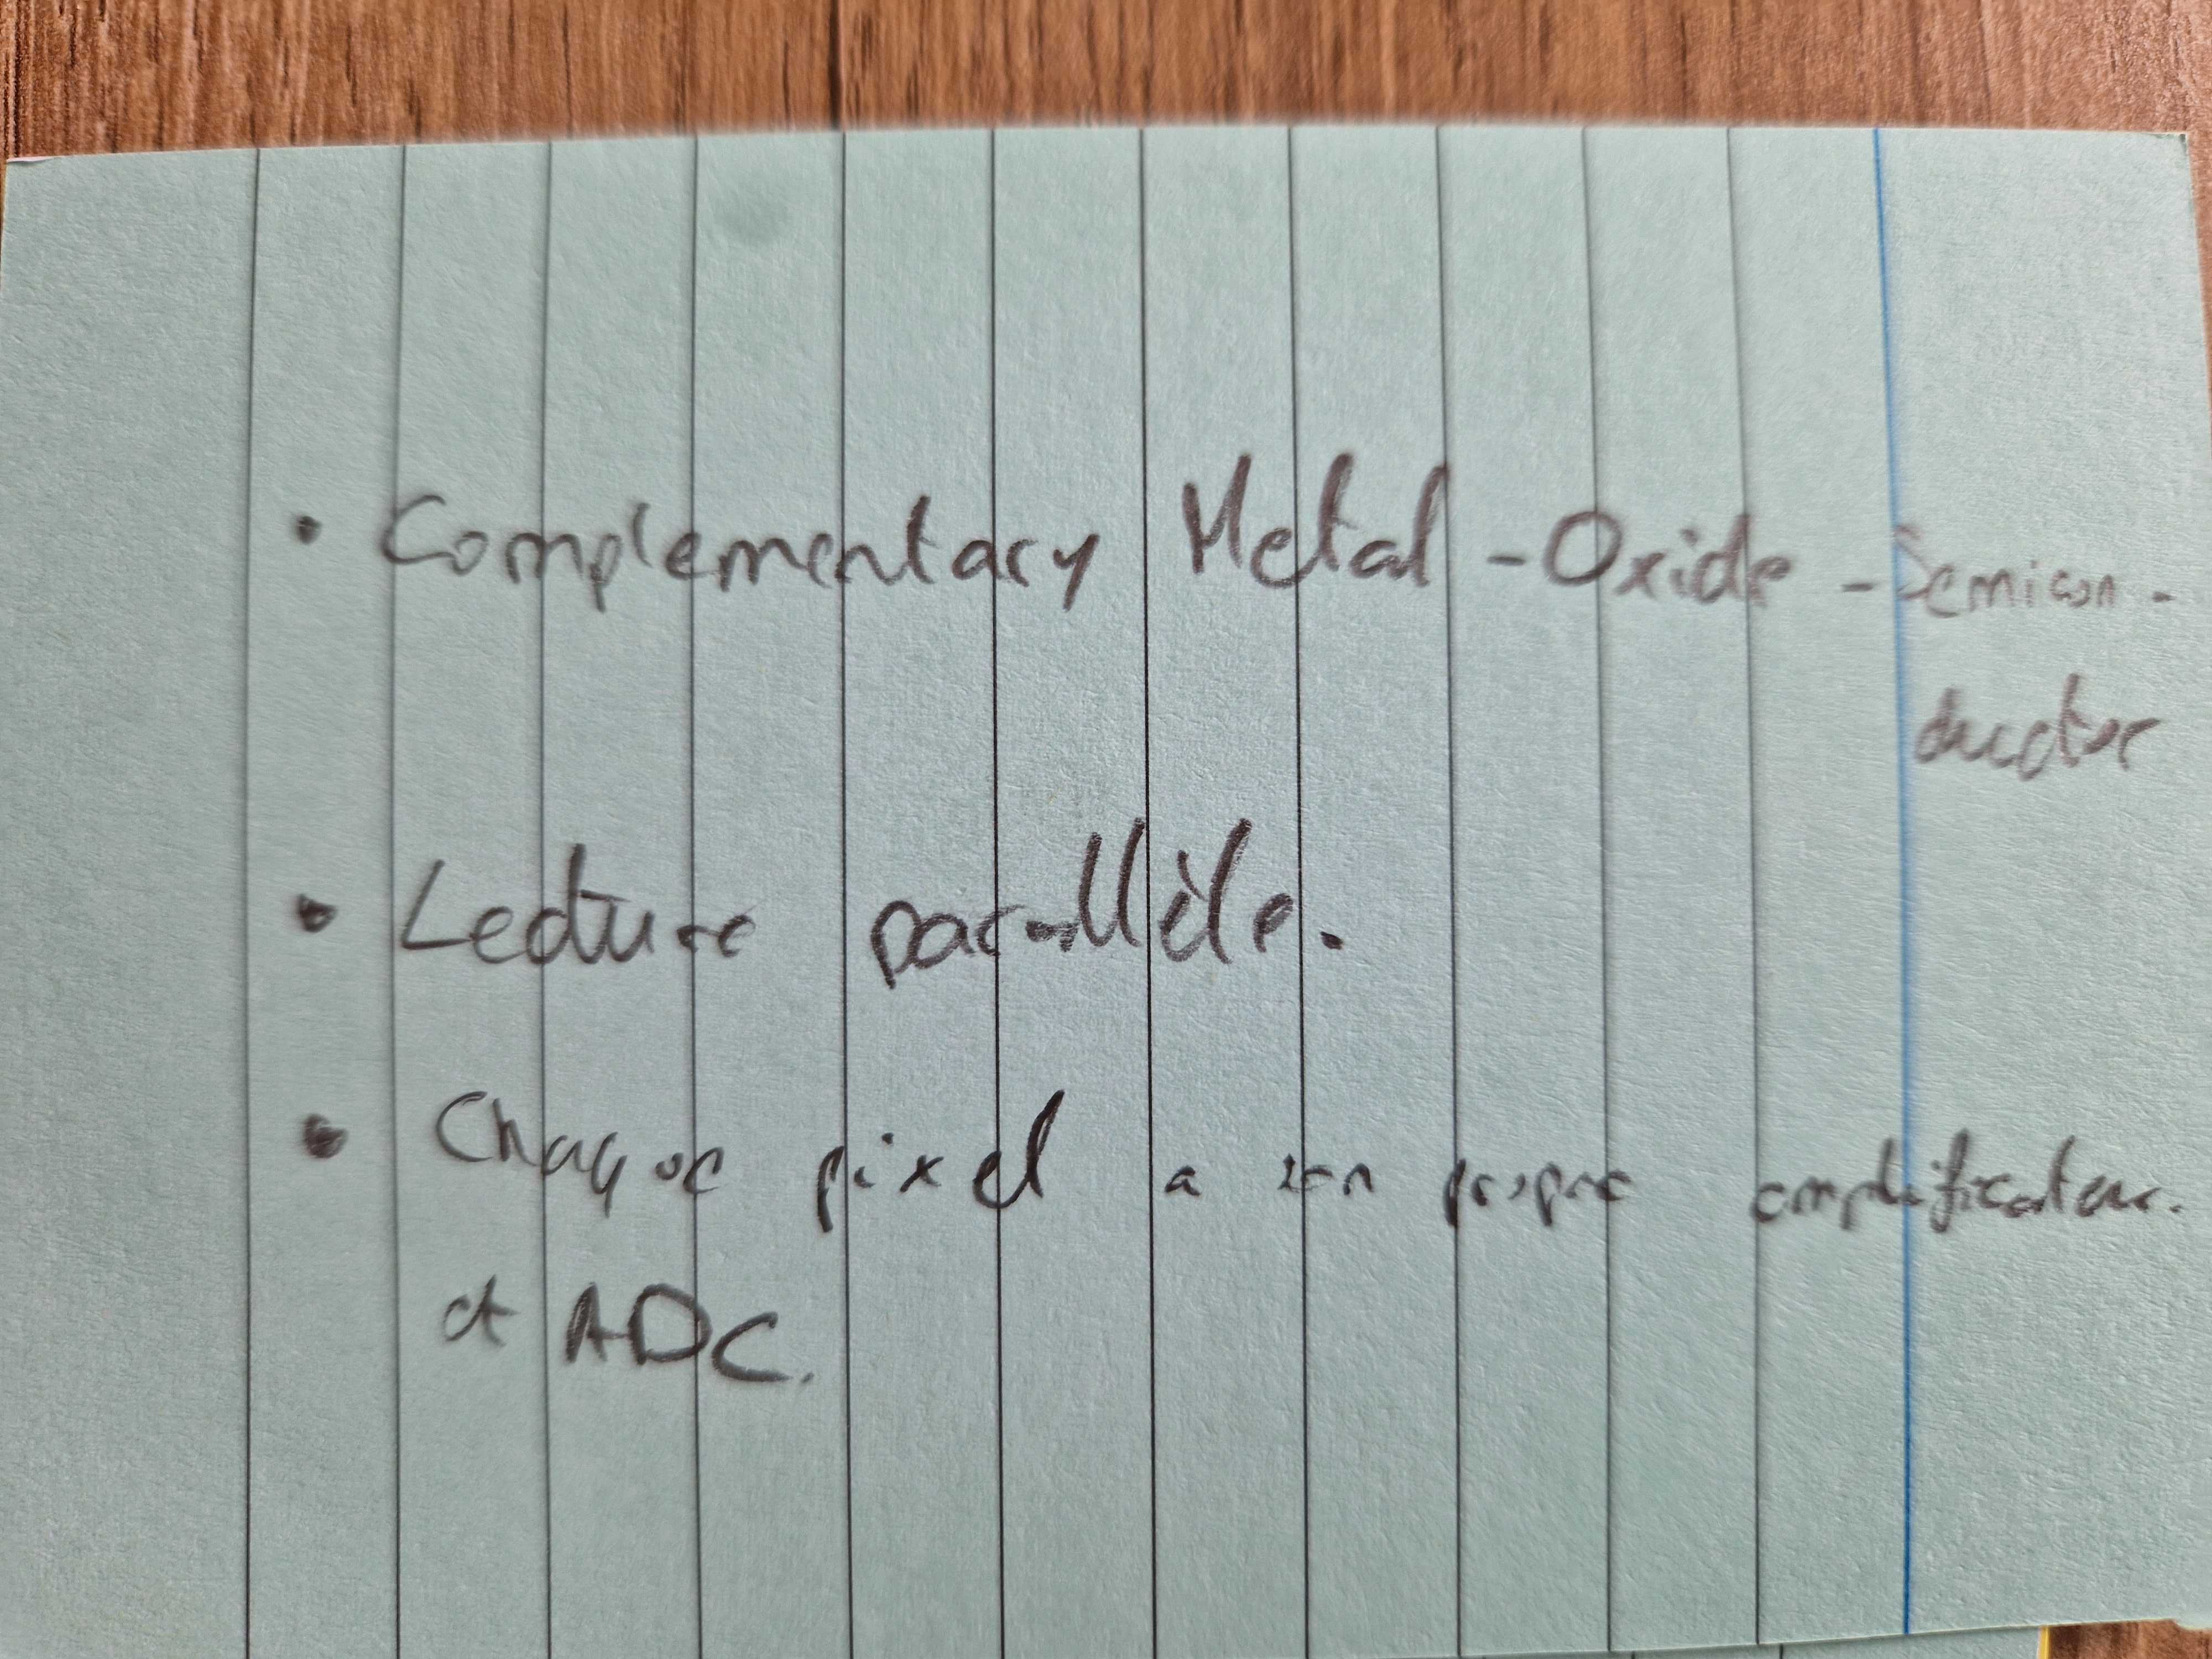 • Complementary Metal-Oxide-Semicon-
ductor
• Lecture parallèle.
• Chaque pixel a son propre amplificateur.
et ADC.